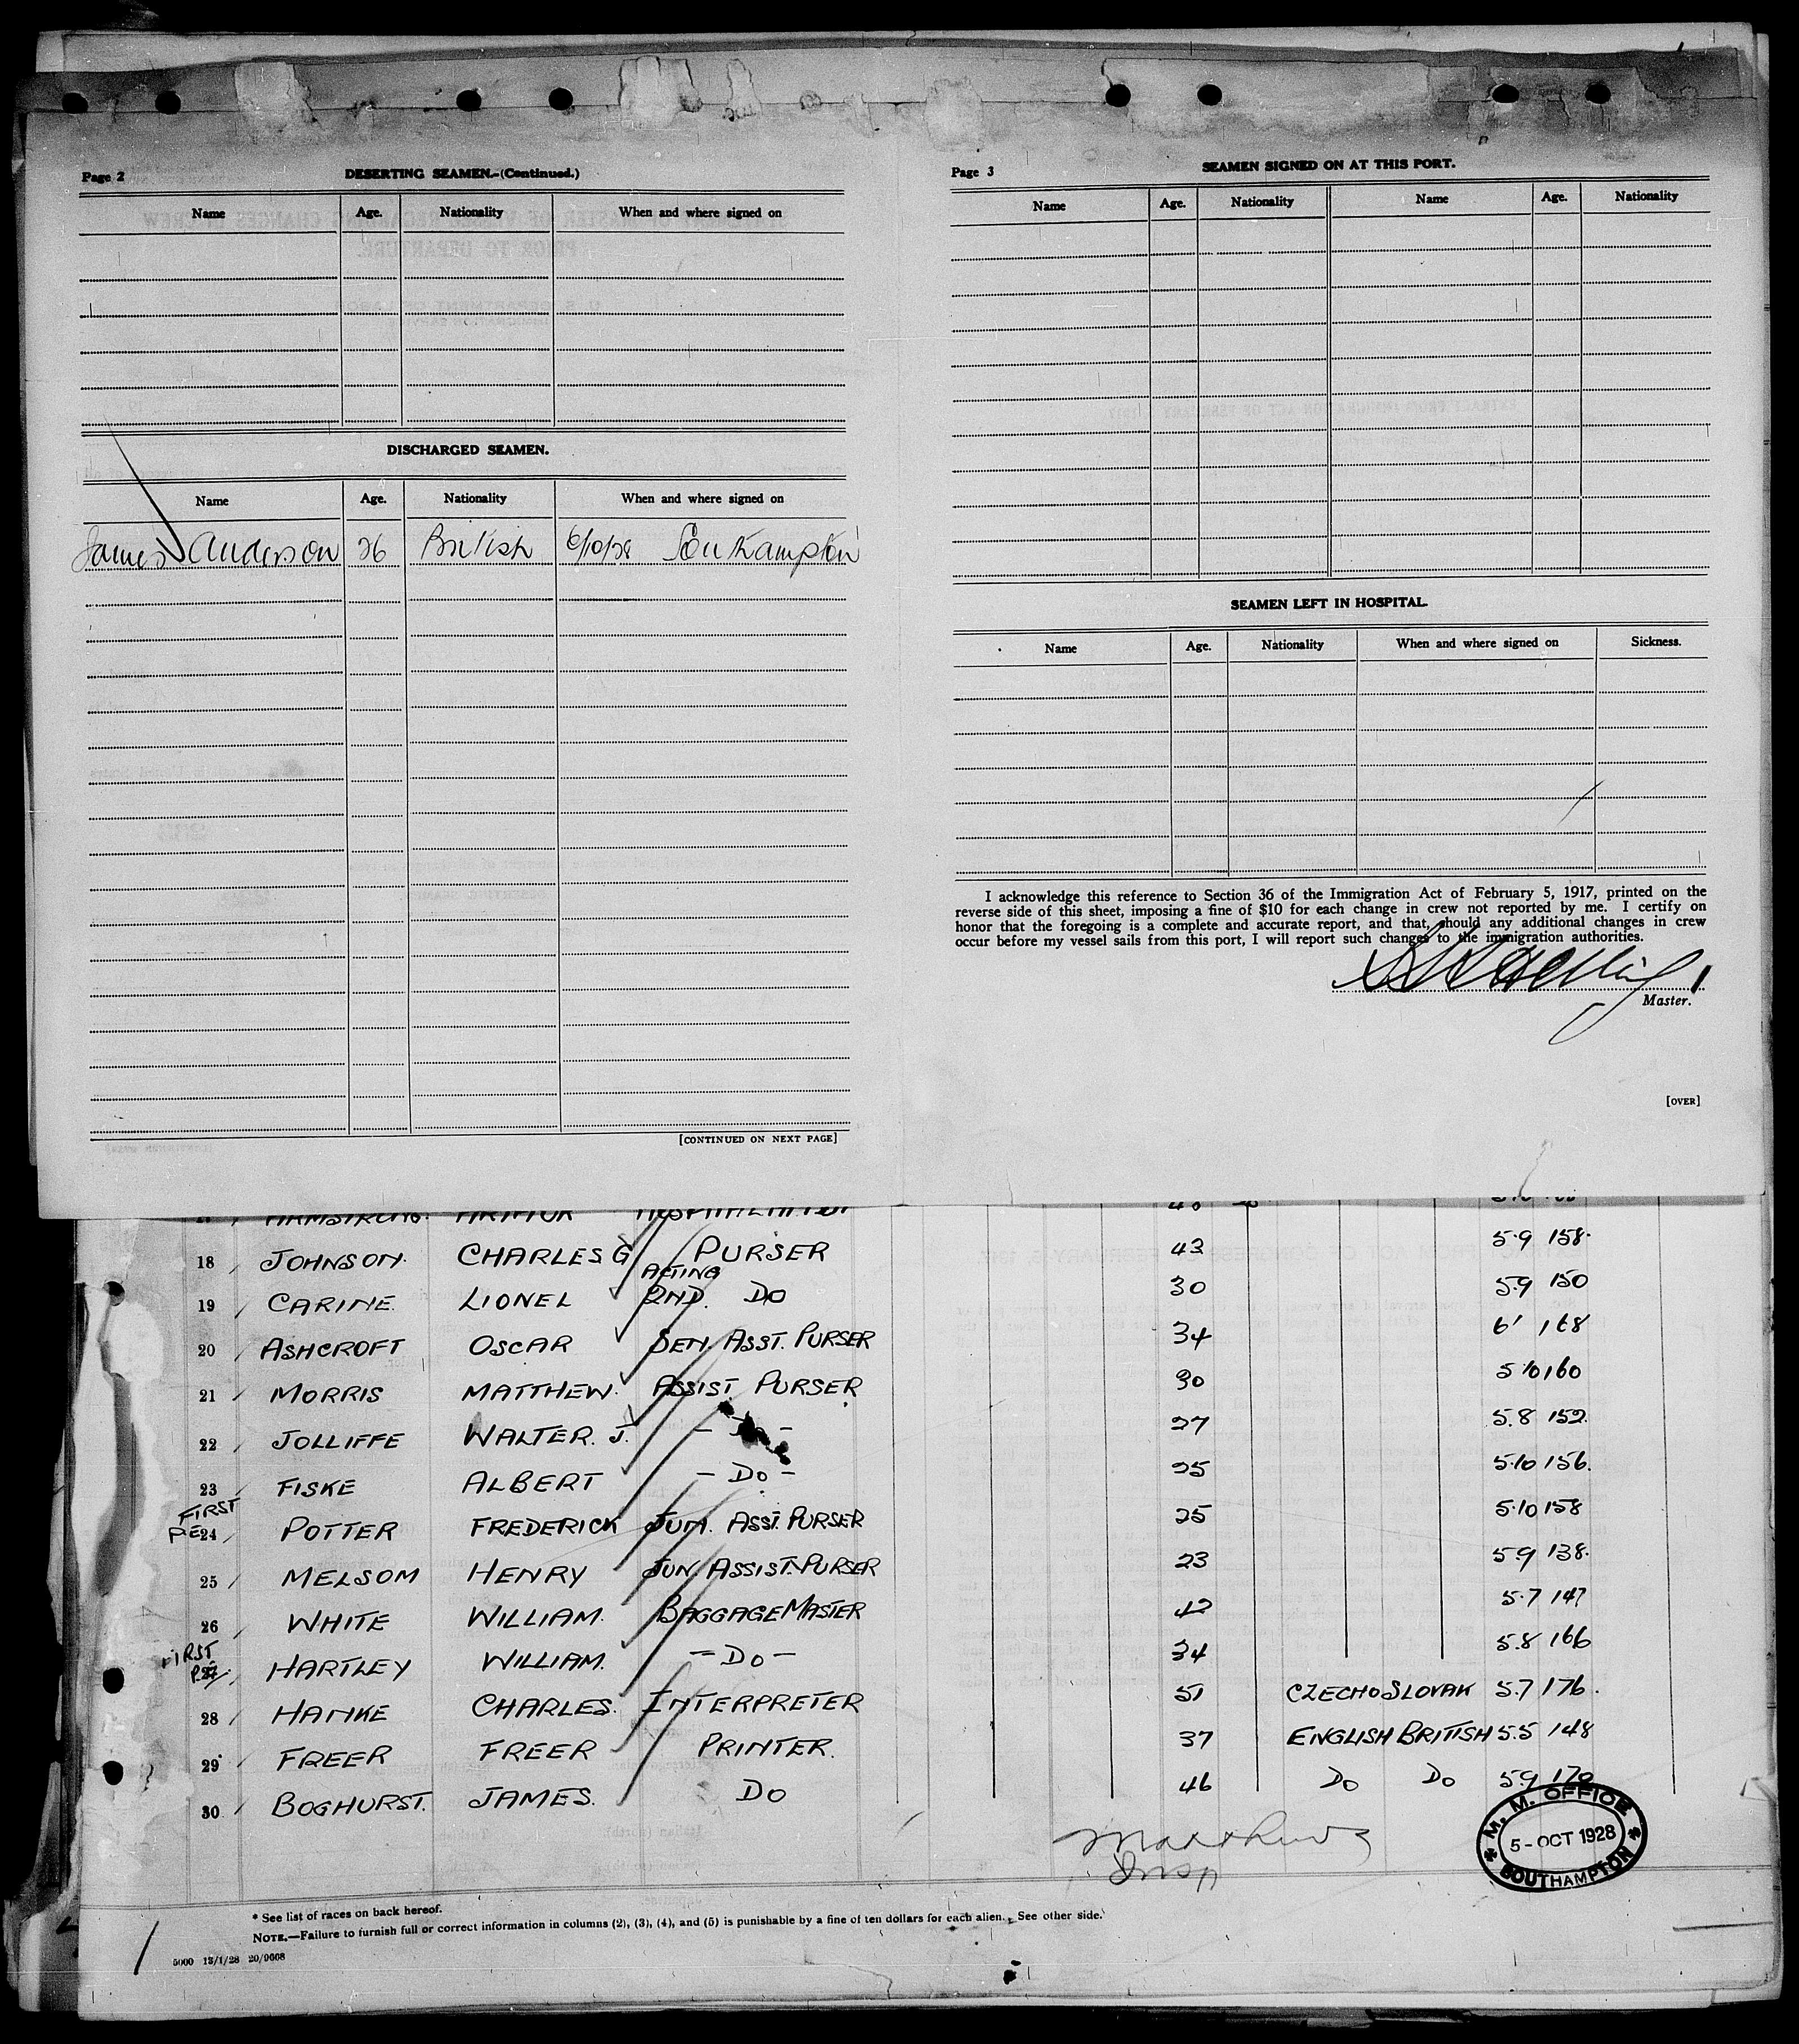 Page 2
DESERTING SEAMEN.-(Continued.)
Name Age. Nationality When and where signed on
DISCHARGED SEAMEN.
Name Age. Nationality When and where signed on
James Anderson 26 British 6/10/28 Southampton
[CONTINUED ON NEXT PAGE]
Page 3
SEAMEN SIGNED ON AT THIS PORT.
Name Age. Nationality Name Age. Nationality
SEAMEN LEFT IN HOSPITAL.
Name Age. Nationality When and where signed on Sickness.
I acknowledge this reference to Section 36 of the Immigration Act of February 5, 1917, printed on the
reverse side of this sheet, imposing a fine of $10 for each change in crew not reported by me. I certify on
honor that the foregoing is a complete and accurate report, and that, should any additional changes in crew
occur before my vessel sails from this port, I will report such changes to the immigration authorities.
Master.
[OVER]
ARMSTRONG. ARTHUR
18 JOHNSON. CHARLES G PURSER 43 5.9 158.
ACTING
19 CARINE. LIONEL 2ND. DO 30 5.9 150
20 ASHCROFT OSCAR SEN. ASST. PURSER 34 6' 168
21 MORRIS MATTHEW. ASSIST. PURSER 30 5.10 160
22 JOLLIFFE WALTER. J. 27 5.8 152.
23 FISKE ALBERT - DO - 25 5.10 156.
FIRST
24 POTTER FREDERICK JUN. ASST. PURSER 25 5.10 158
25 MELSOM HENRY JUN. ASSIST. PURSER 23 5.9 138.
26 WHITE WILLIAM. BAGGAGE MASTER 42 5.7 147
FIRST
27 HARTLEY WILLIAM. - DO - 34 5.8 166
28 HANKE CHARLES. INTERPRETER 51 CZECHO SLOVAK 5.7 176.
29 FREER FREER PRINTER. 37 ENGLISH BRITISH 5.5 148
30 BOGHURST. JAMES. DO 46 DO DO 5.9 170
Matthews
Insp
M. M. OFFICE
5-OCT 1928
SOUTHAMPTON
* See list of races on back hereof.
NOTE.—Failure to furnish full or correct information in columns (2), (3), (4), and (5) is punishable by a fine of ten dollars for each alien. See other side.
5000 13/1/28 20/9668